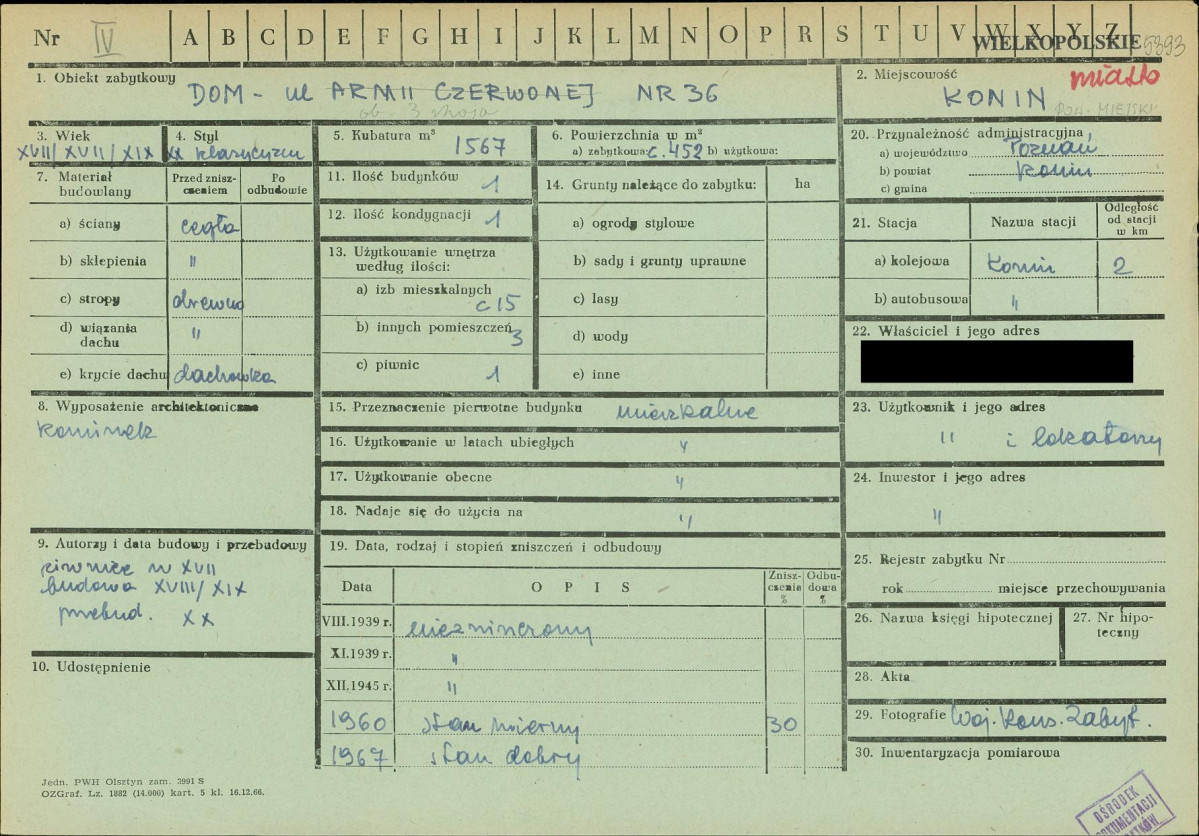 Nr IV A B C D E F G H I J K L M N O P R S T U V W X Y Z WIELKOPOLSKIE 5393
1. Obiekt zabytkowy
DOM - ul ARMII CZERWONEJ NR 36
ob. 3 maja
2. Miejscowość miasto
KONIN POW. MIEJSKI
3. Wiek
XVII/XVII/XIX XX
4. Styl
klasycyzm
5. Kubatura m³ 1567
6. Powierzchnia w m²
a) zabytkowa: c. 452 b) użytkowa:
7. Materiał budowlany
Przed zniszczeniem
Po odbudowie
a) ściany cegła
b) sklepienia "
c) stropy drewno
d) wiązania dachu "
e) krycie dachu dachówka
8. Wyposażenie architektoniczne
kominek
9. Autorzy i data budowy i przebudowy
piwnice w XVII
budowa XVIII/XIX
przebud. XX
10. Udostępnienie
11. Ilość budynków 1
12. Ilość kondygnacji 1
13. Użytkowanie wnętrza
według ilości:
a) izb mieszkalnych
c 15
b) innych pomieszczeń
3
c) piwnic 1
14. Grunty należące do zabytku: ha
a) ogrody stylowe
b) sady i grunty uprawne
c) lasy
d) wody
e) inne
15. Przeznaczenie pierwotne budynku mieszkalne
16. Użytkowanie w latach ubiegłych "
17. Użytkowanie obecne "
18. Nadaje się do użycia na "
19. Data, rodzaj i stopień zniszczeń i odbudowy
Data OPIS Zniszczenia % Odbudowa %
VIII.1939 r. niezniszczony
XI.1939 r. "
XII.1945 r. "
1960 stan mierny 30
1967 stan dobry
20. Przynależność administracyjna
a) województwo Poznań
b) powiat Konin
c) gmina
21. Stacja Nazwa stacji Odległość od stacji w km
a) kolejowa Konin 2
b) autobusowa "
22. Właściciel i jego adres
23. Użytkownik i jego adres
" i lokatorzy
24. Inwestor i jego adres
"
25. Rejestr zabytku Nr
rok miejsce przechowywania
26. Nazwa księgi hipotecznej
27. Nr hipoteczny
28. Akta
29. Fotografie Woj. Kons. Zabyt.
30. Inwentaryzacja pomiarowa
Jedn. PWH Olsztyn zam. 3991 S
OZGraf. Lz. 1882 (14.000) kart. 5 kl. 16.12.66.
OŚRODEK
DOKUMENTACJI